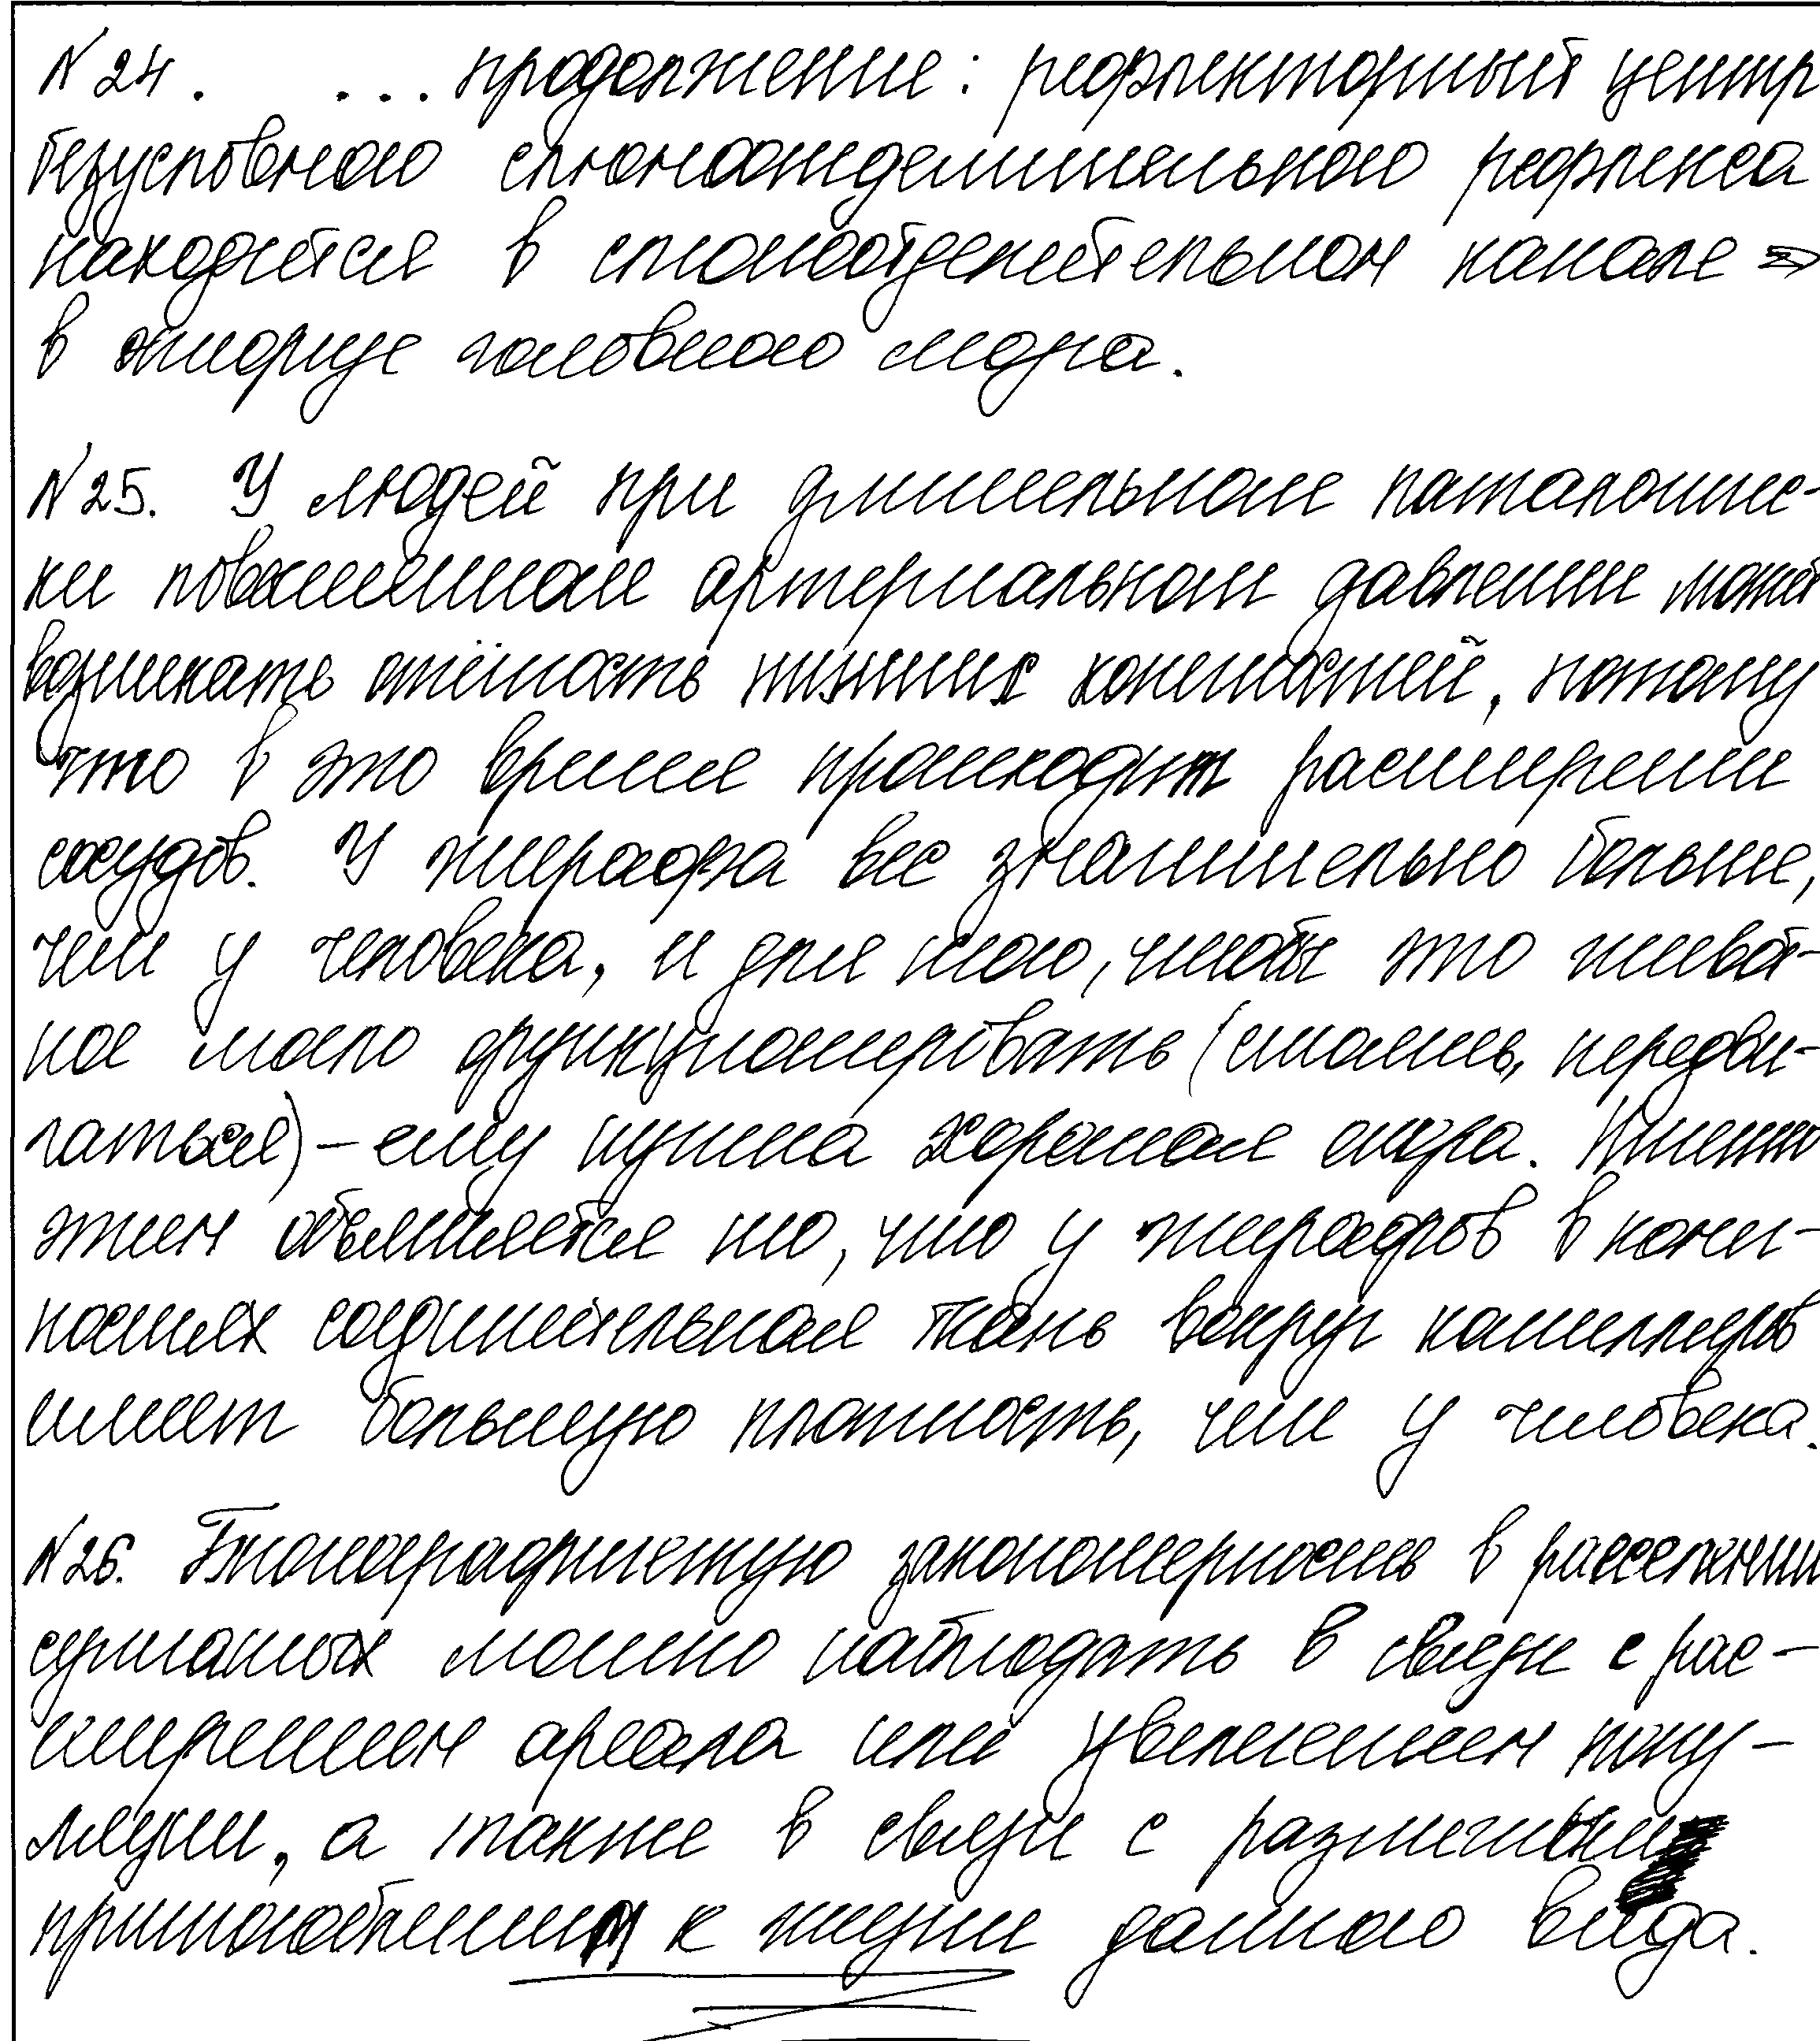 N 24. ... продолжение: рефлекторный центр
безусловного слюноотделительного рефлекса
находится в слюноотделительном канале ⇒
в головного мозга.
N 25. У людей при длительном патологичес-
ки повышенном артериальном давлении может
возникать отёчность нижних конечностей, потому
что в это время происходит расширение
сосудов. У жирафа вес значительно больше,
чем у человека, и для того, чтобы это живот-
ное могло функционировать (стоять, передви-
гаться) – ему нужна хорошая опора. Именно
этим объясняется то, что у жирафов в конеч-
ностях соединительная ткань вокруг капилляров
имеет большую плотность, чем у человека.
N 26. закономерность в расселении
сумчатых можно наблюдать в связи с рас-
ширением ареала или увеличением попу-
ляции, а также в связи с различными
приспособлениям к жизни данного вида.